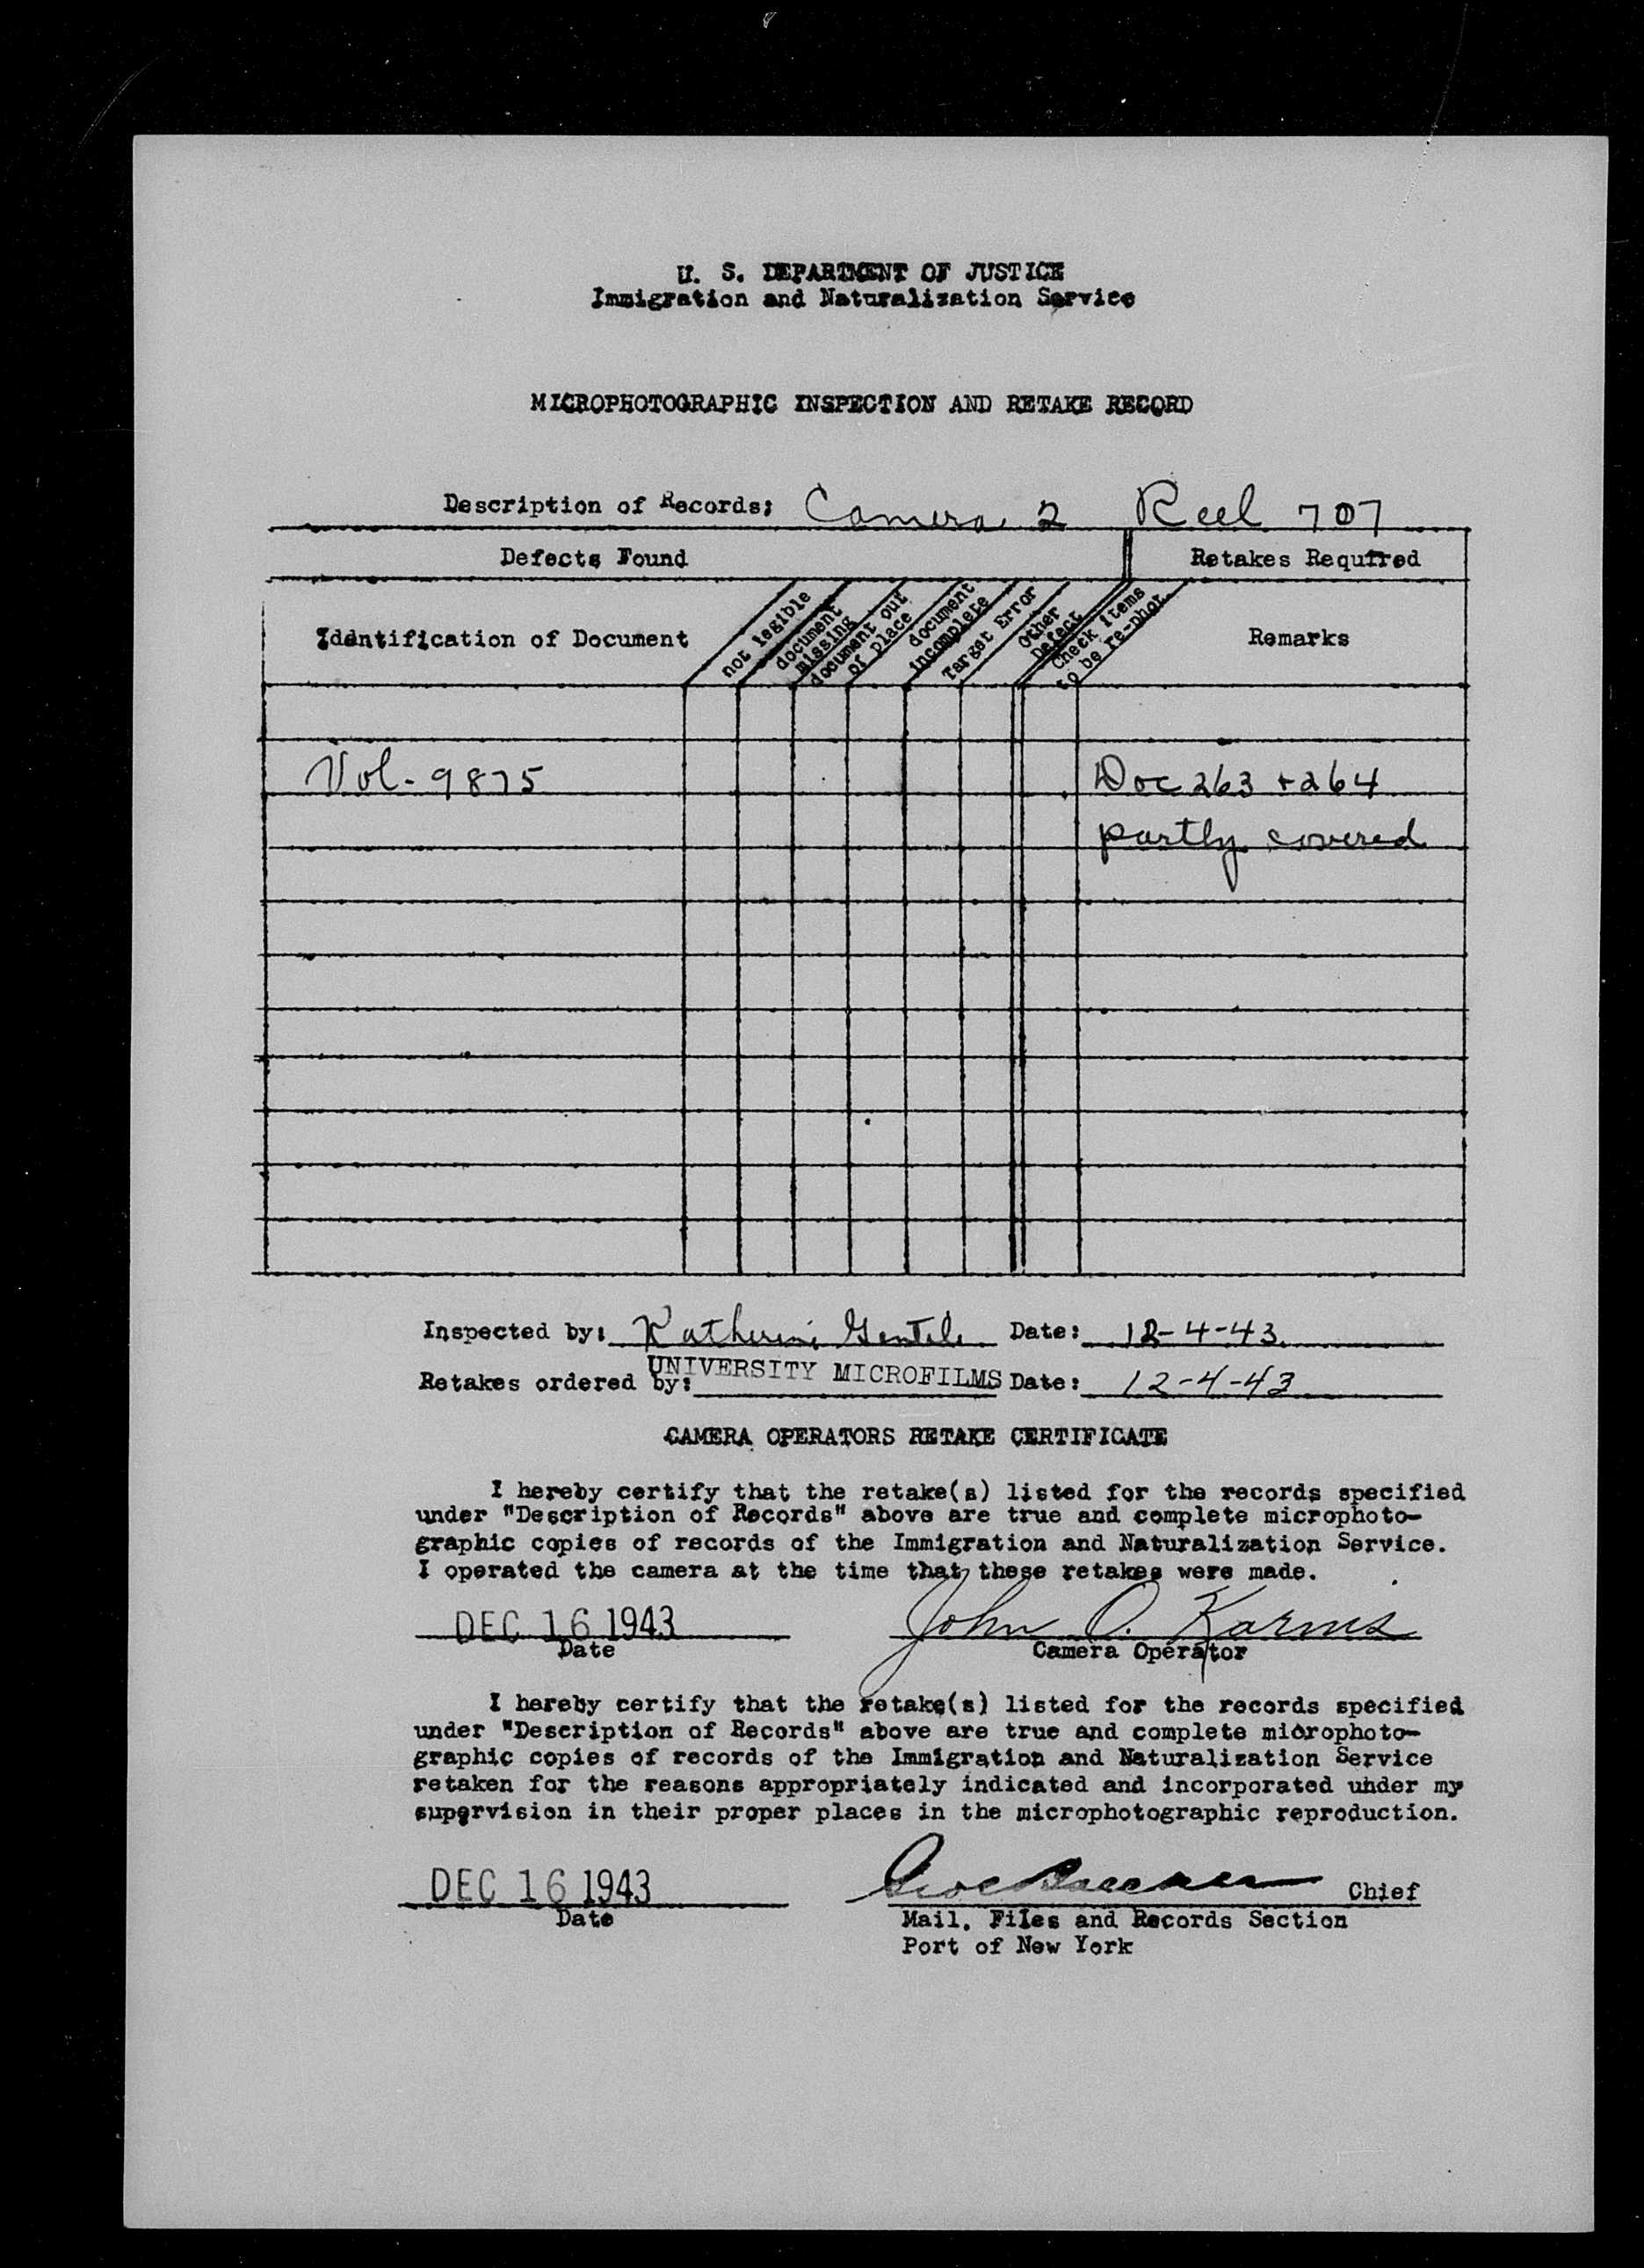 U. S. DEPARTMENT OF JUSTICE
Immigration and Naturalization Service
MICROPHOTOGRAPHIC INSPECTION AND RETAKE RECORD
Description of Records: Camera 2 Reel 707
Defects Found
Retakes Required
Identification of Document
not legible
document missing
document out of place
document incomplete
Target Error
Other Defect
Check items to be re-phot.
Remarks
Vol - 9875
Doc 263 + 264
partly covered
Inspected by: Katherine Gentile Date: 12-4-43
Retakes ordered by: UNIVERSITY MICROFILMS Date: 12-4-43
CAMERA OPERATORS RETAKE CERTIFICATE
I hereby certify that the retake(s) listed for the records specified
under "Description of Records" above are true and complete microphoto-
graphic copies of records of the Immigration and Naturalization Service.
I operated the camera at the time that these retakes were made.
DEC 16 1943
John O. Karms
Date
Camera Operator
I hereby certify that the retake(s) listed for the records specified
under "Description of Records" above are true and complete microphoto-
graphic copies of records of the Immigration and Naturalization Service
retaken for the reasons appropriately indicated and incorporated under my
supervision in their proper places in the microphotographic reproduction.
DEC 16 1943
Chief
Date
Mail, Files and Records Section
Port of New York